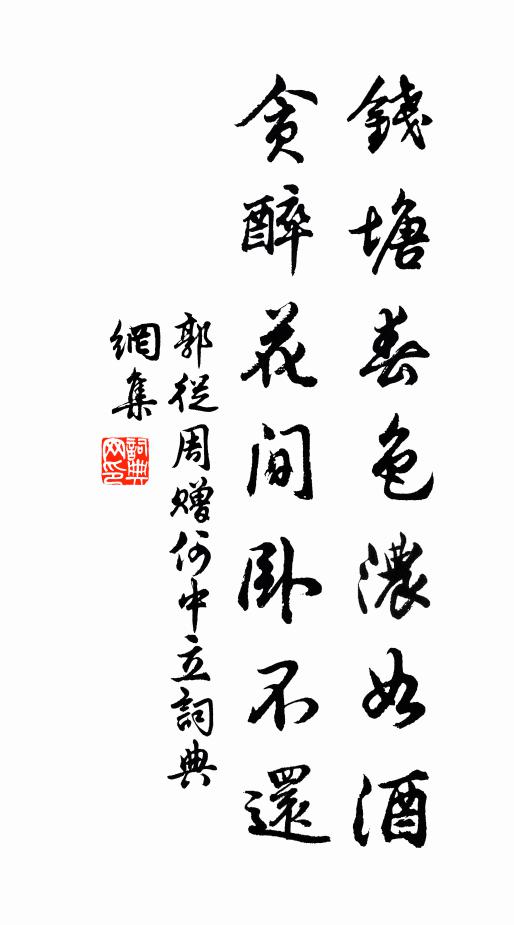 錢塘春色濃如酒
貪醉花間卧不還
郭從周贈何中立詞典
網集
詞典網印